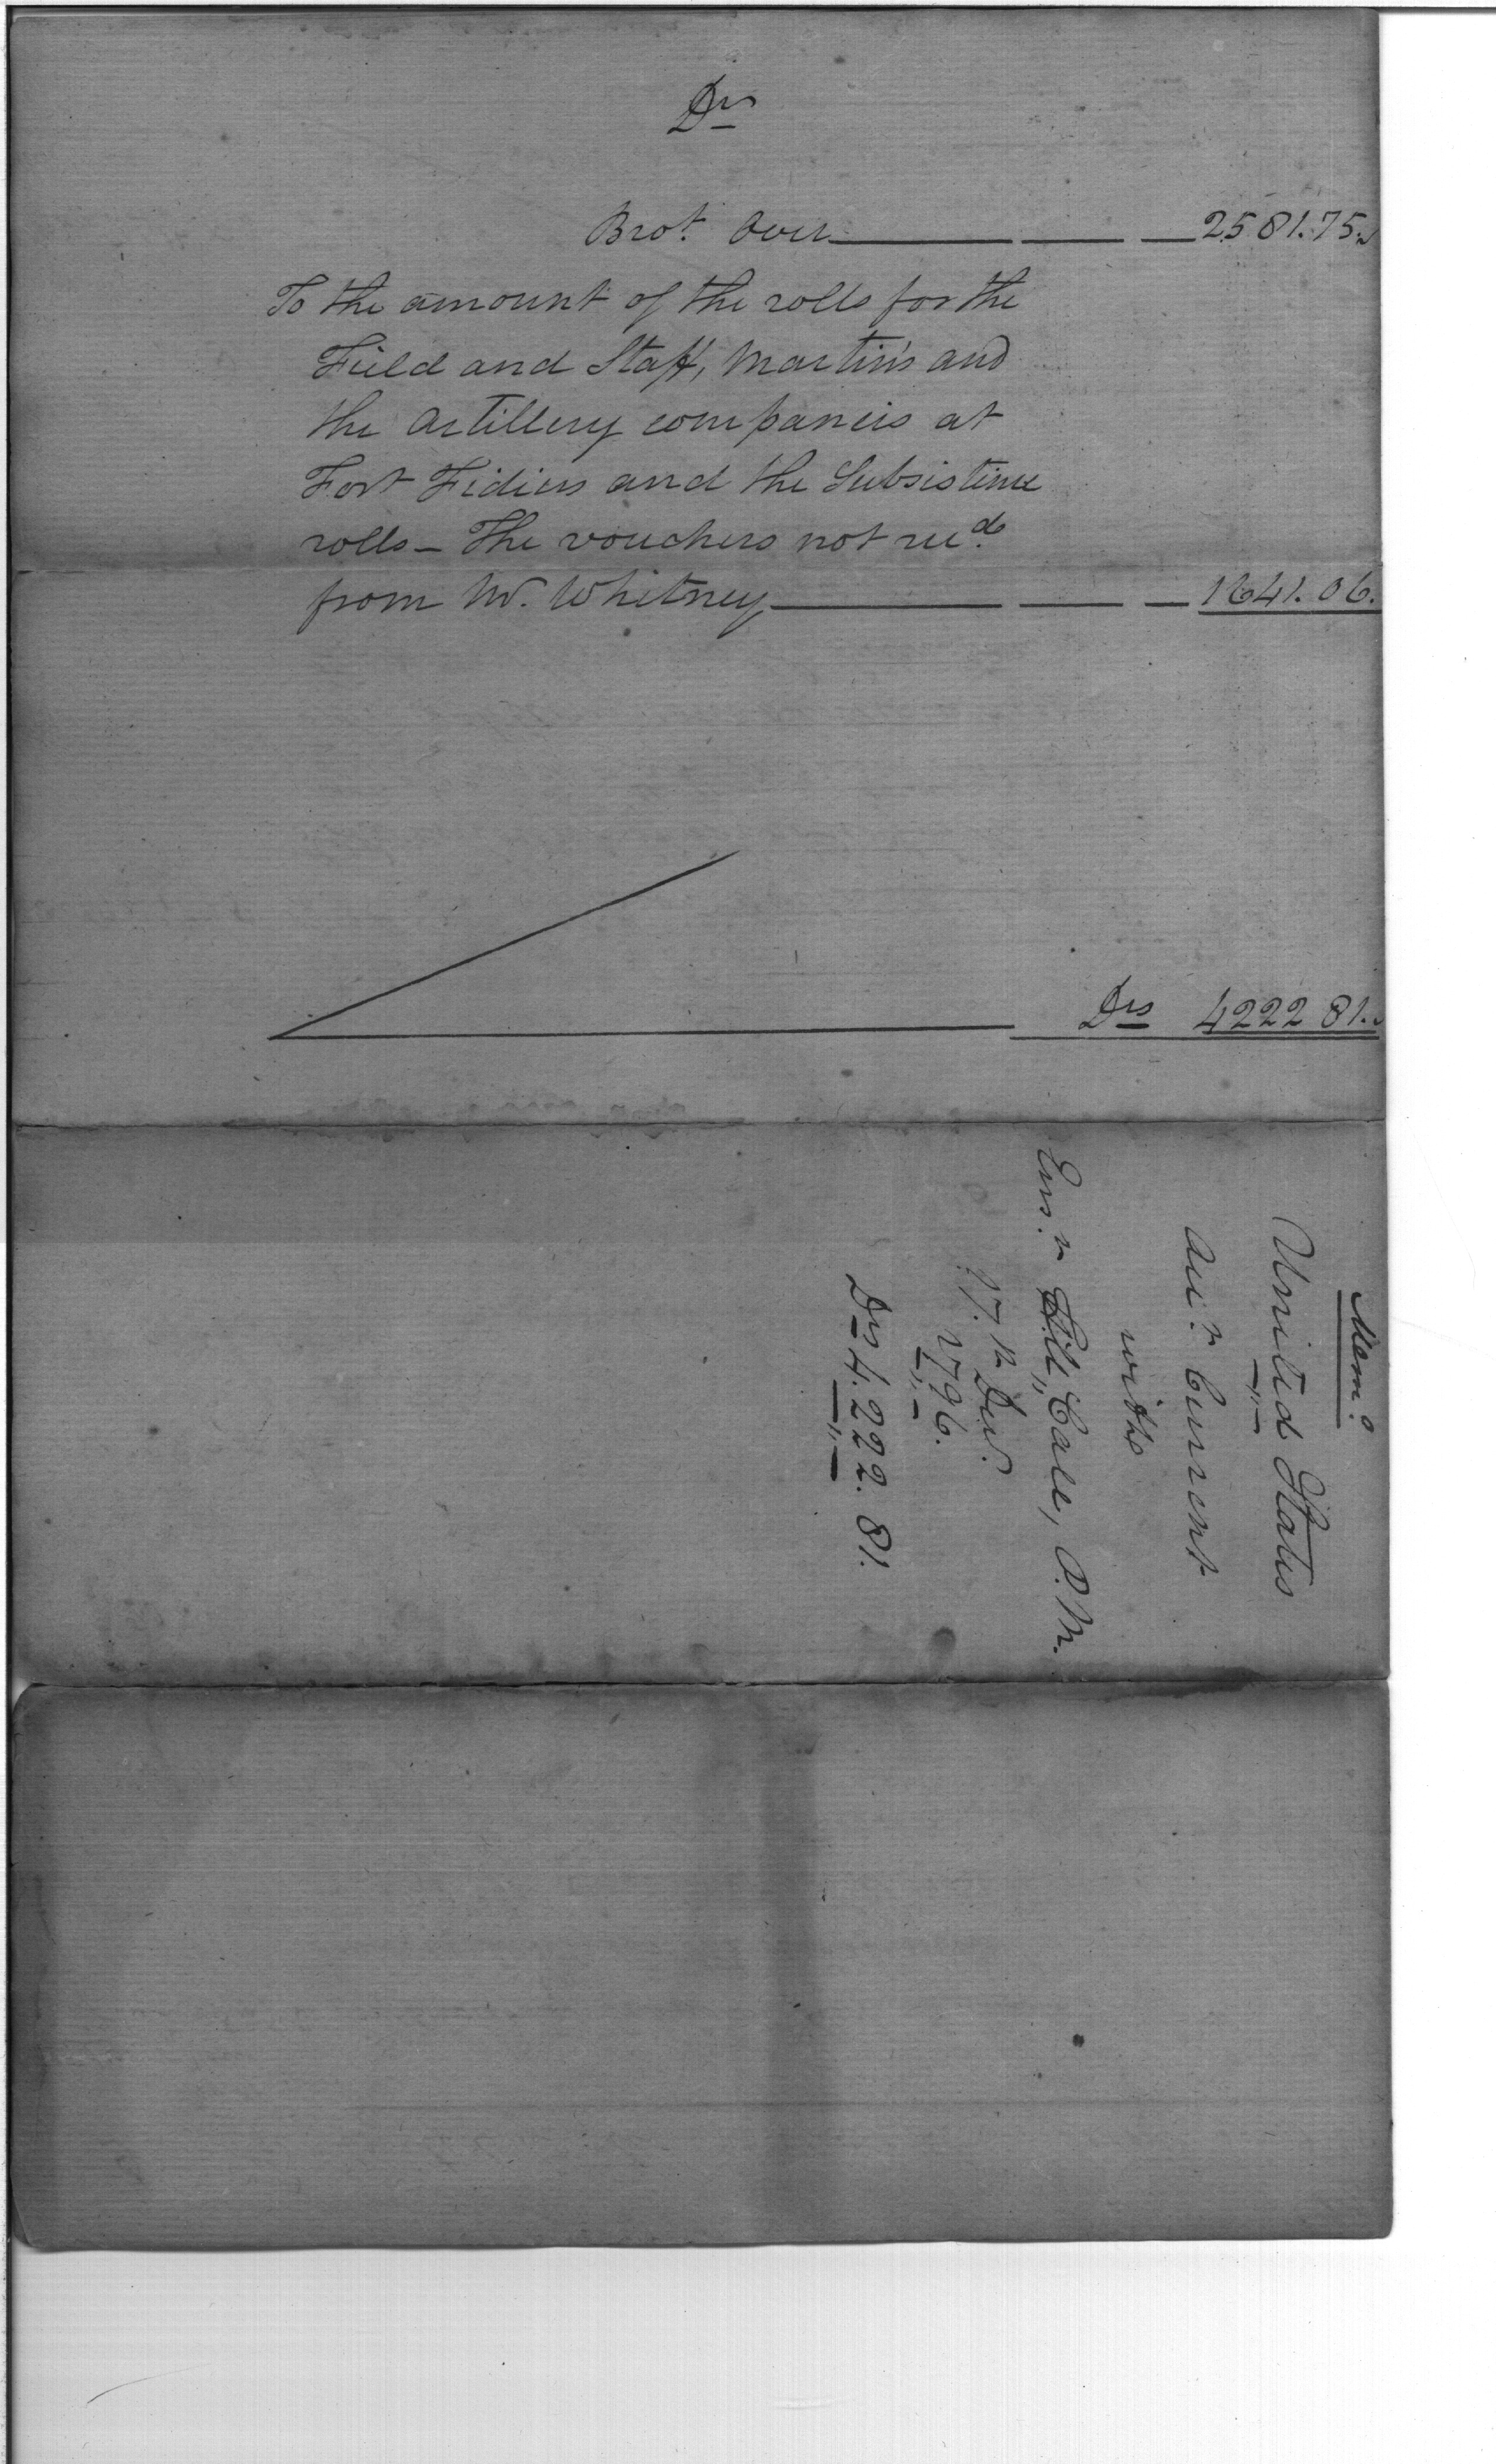 Drs
Brot. Over 2581.75.
To the amount of the rolls for the
Field and Staff, Martin's and
the Artillery companies at
Fort Fidius and the Subsistence
rolls – The vouchers not recd.
from Mr. Whitney 1641.06.
Drs 4222 81.
Memo.
United States
Acct. Current
with
Ens.n Call, P.M.
17.th Decr.
1796.
Drs 4.222.81.